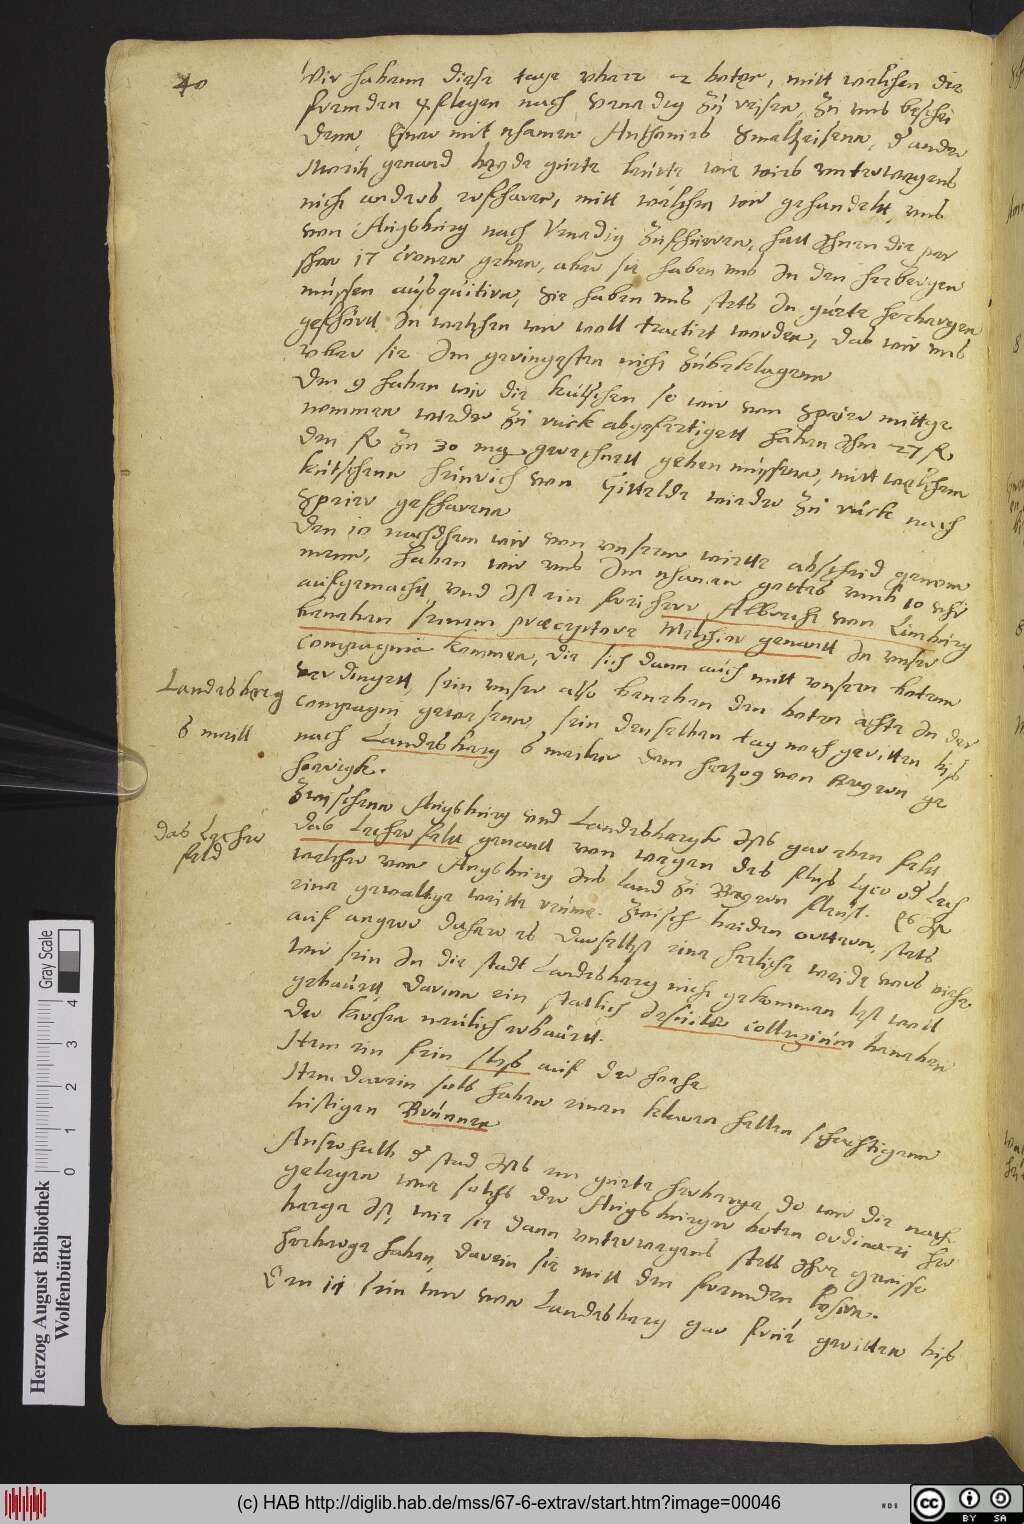 40
Wir haben diese tage uber 2 boten, mitt welchen die
frembden pflegen nach Venedig zu reisen, zu uns beschei
denn, Einer mit nhamen Anthonius Schmaltzeisenn, d ander
Marix genand beyde guete leute wie wirs unterwegens
nicht anders erfharen, mitt welchen wir gehandelt, uns
von Augsburg nach Venedig zufhüren, hatt ihnen die per
shon 17 cronen geben, aber sie haben uns in den herbergen
müssen ausquitirn, Sie haben uns stets in guete herbergen
gefhürtt in welchen wir woll tractirt worden, das wir uns
uber sie im geringesten nicht zubeklagenn
Den 9 haben wir die kutschen so wir von Speier mittge
nommen wieder zu rück abgefertigett haben ihm 27 fl
den fl zu 30 mg gerechnett geben müssen, mitt welchem
kutschenn Heinrich von Gittelde wieder zu rück nach
Speier gefharenn
Den 10 nachdhem wir von unserm wirtte abscheid genom
menn, haben wir uns im nhamen gottes umb 10 uhr
aufgemacht, und ist ein freiherr Albrecht von Limburg
beneben seinem præceptore Melchior genantt in unser
compagnia kommen, die sich dann auch mitt unsern boten
verdingett, sein unser also beneben den boten achte in der
compagni gewesenn, sein denselben tag noch geritten bis
nach Landesberg 6 meiler dem hertzog von Beyern ge
horigk.
Landesberg
6 meill
Zwischenn Augsburg und Landesbergk ists gar eben feltt
das Lecher feltt genantt von wegen des flus Lyco od Lech
welcher von Augsburg ins land zu Beyern fleust. Es ist
eine gewaltige weitte reume. Zwisch beiden orttern, stets
auf anger daher es daselbst eine herliche weide vors viehe
das Lecher
feld
Wir sein in die stadt Landesberg nicht gekommen ist woll
gebauett darinn ein statlich Jesuiter collegium beneben
der kirchen neulich erbauett.
Item ein fein slos auf der hoehe
Item darein sols haben einen kleinen hellen
lustigen Brunnen
Ausserhalb d stad ists ein guete herberge do wir die nacht
gelegen wie solchs der Augsburger boten ordinari her
berge ist, wie sie dann unterwegens stett ihre gewisse
herberge haben, darein sie mitt den frembden losirn.
Den 11 sein wir von Landesberg gar frue geritten bis
Herzog August Bibliothek
Wolfenbüttel
Gray Scale
0 1 2 3 4
(c) HAB http://diglib.hab.de/mss/67-6-extrav/start.htm?image=00046
WDB
cc
BY SA